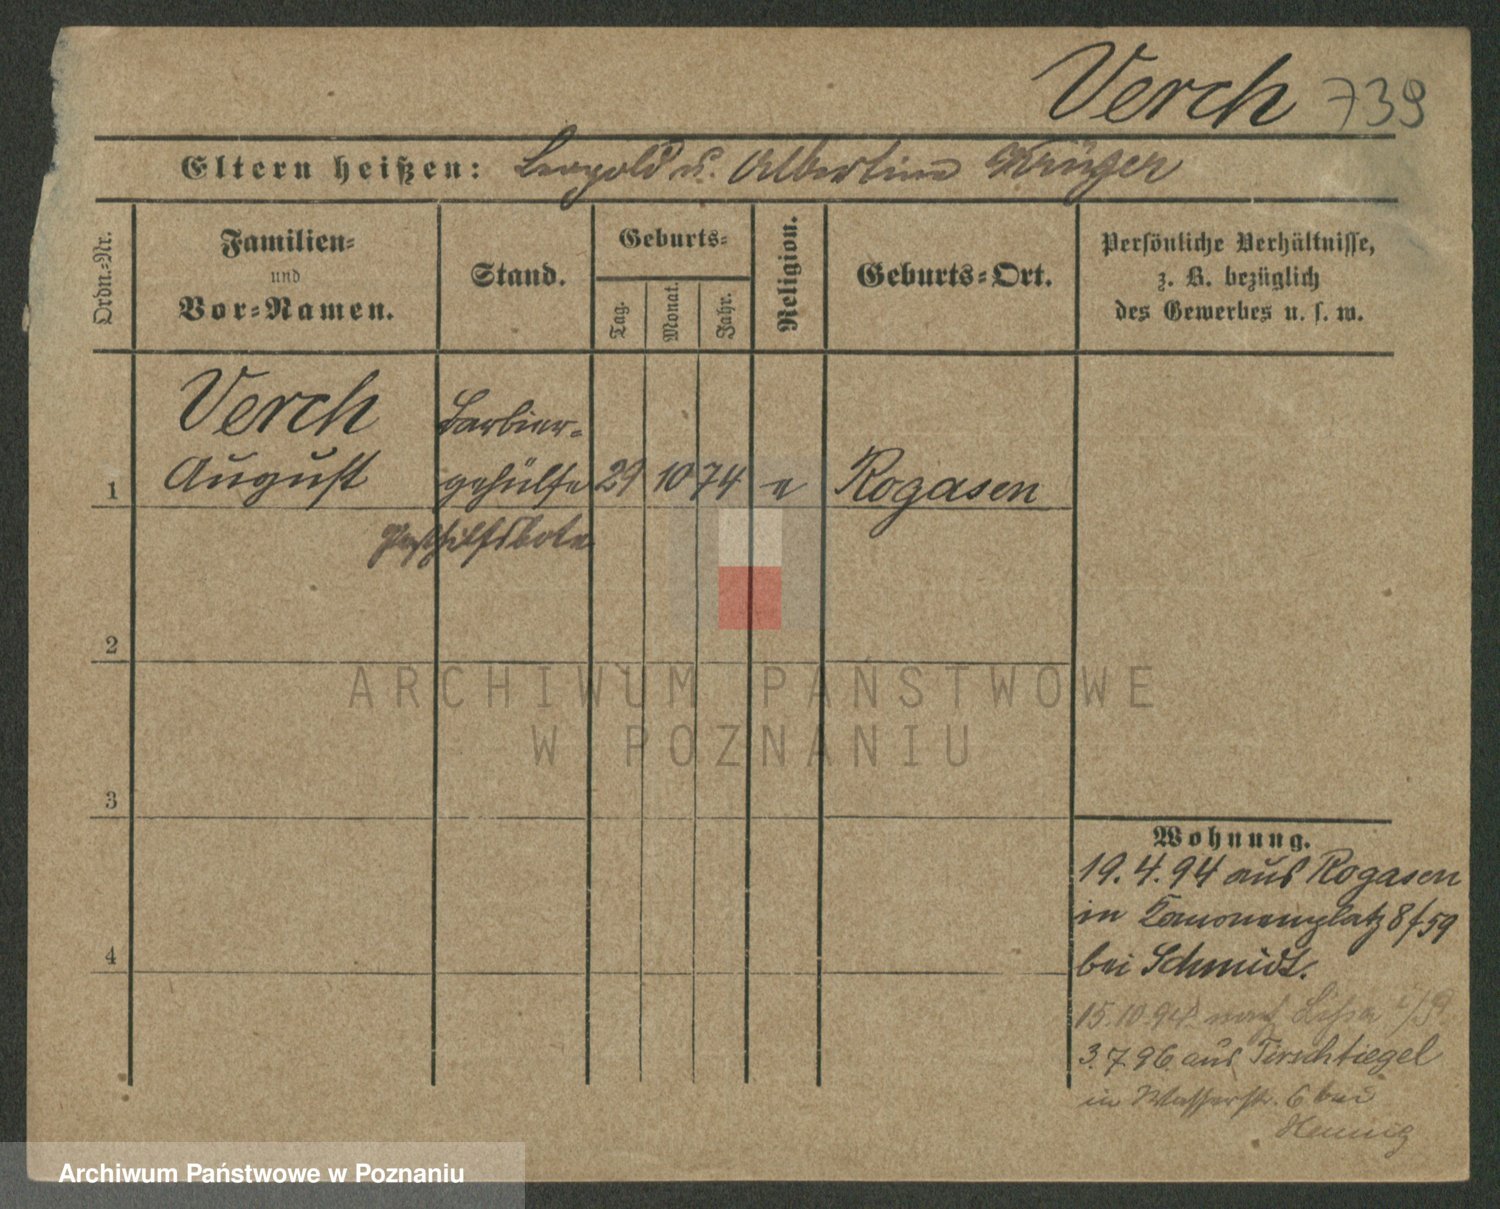 Verch 739
Eltern heißen: Leopold u. Albertine Krüger
Ordn.-Nr.
Familien-
und
Vor-Namen.
Stand.
Geburts-
Tag.
Monat.
Jahr.
Religion.
Geburts-Ort.
Persönliche Verhältnisse,
z. B. bezüglich
des Gewerbes u. s. w.
Verch
August
Barbier-
gehülfe
1 29 10 74 e Rogasen
Posthilfsbote
2
3
4
Wohnung.
19.4.94 aus Rogasen
in Kanonenplatz 8/59
bei Schmidt.
15.10.94 nach Lissa i/P
3.7.96 aus Tirschtiegel
in Wasserstr. 6 bei
Hennig
ARCHIWUM PAŃSTWOWE
W POZNANIU
Archiwum Państwowe w Poznaniu